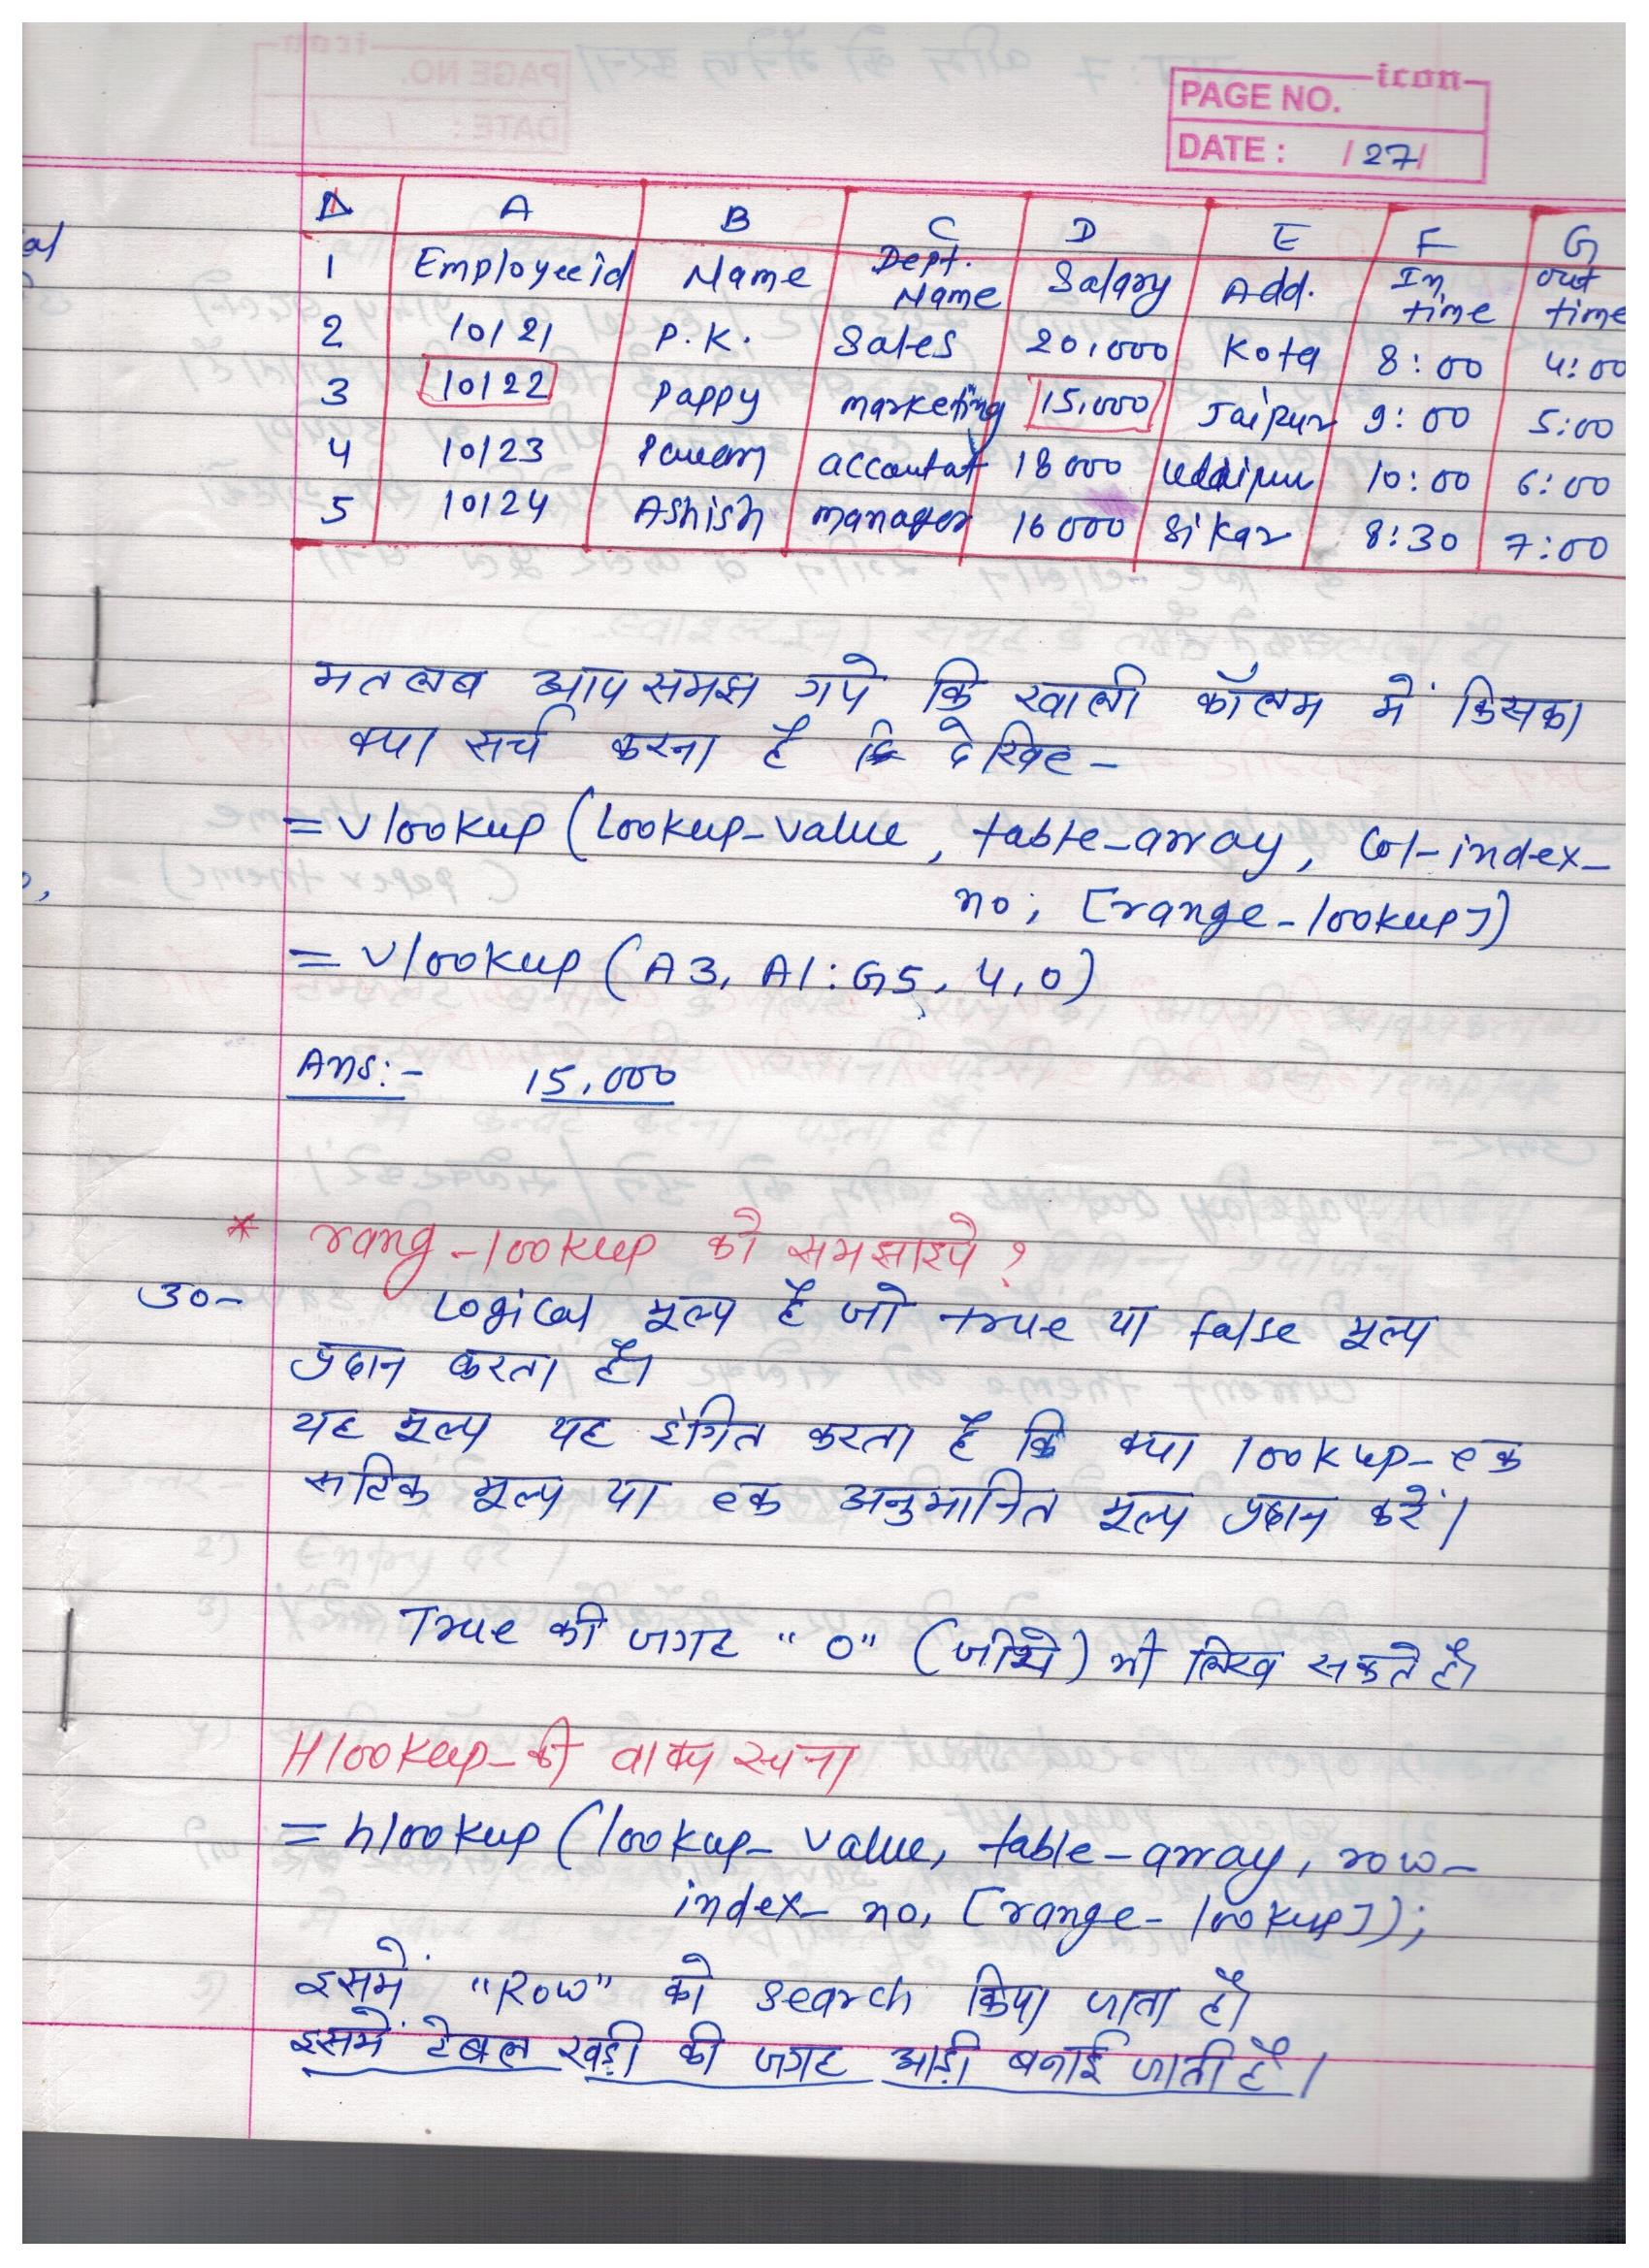 icon
PAGE NO.
DATE : / 27/
A B C D E F G
1 Employee id Name Dept. Name Salary Add. In time out time
2 10121 P.K. Sales 20,000 Kota 8:00 4:00
3 10122 Pappy marketing 15,000 Jaipur 9:00 5:00
4 10123 accountat 18000 10:00 6:00
5 10124 Ashish manager 16000 Sikar 8:30 7:00
मतलब आप समझ गये कि खाली कॉलम में किसका
क्या सर्च करना है देखिए -
= Vlookup (Lookup-value, table-array, Col-index-
no; [range-lookup])
= Vlookup (A3, A1:G5, 4,0)
Ans:- 15,000
* rang-lookup को समझाइये ?
उ०- Logical मूल्य है जो true या false मूल्य
प्रदान करता है।
यह मूल्य यह इंगित करता है कि क्या lookup- एक
सटिक मूल्य या एक अनुमानित मूल्य प्रदान करें।
True की जगह "0" (जीरो) भी लिख सकते है।
Hlookup- की वाक्य रचना
= hlookup (lookup- value, table-array, row-
index- no, [range- lookup]);
इसमें "Row" को search किया जाता है।
इसमें टेबल खड़ी की जगह आड़ी बनाई जाती है।